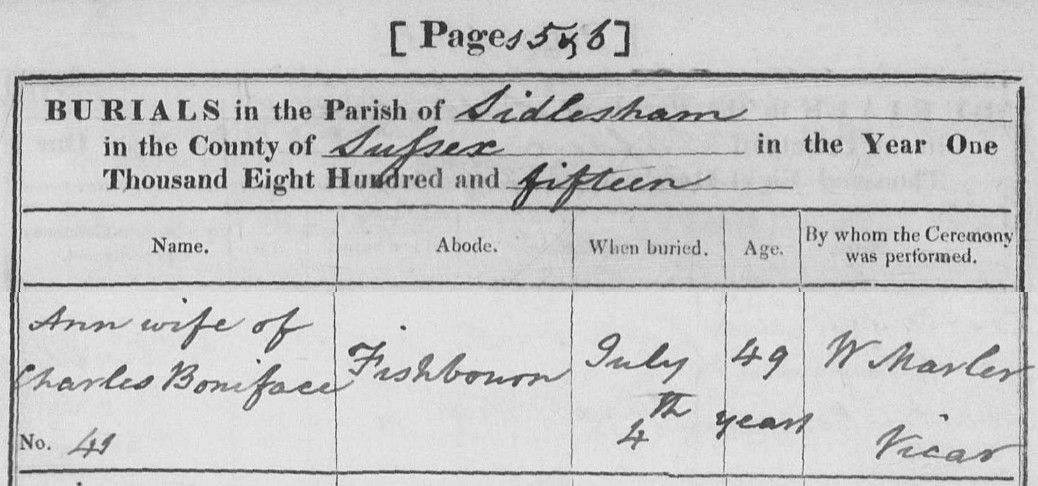 [ Pages 5 & 6 ]
BURIALS in the Parish of Sidlesham
in the County of Sussex in the Year One
Thousand Eight Hundred and fifteen
Name. Abode. When buried. Age. By whom the Ceremony was performed.
Ann wife of
Charles Boniface Fishbourn July 49 W Marler
4th years Vicar
No. 41